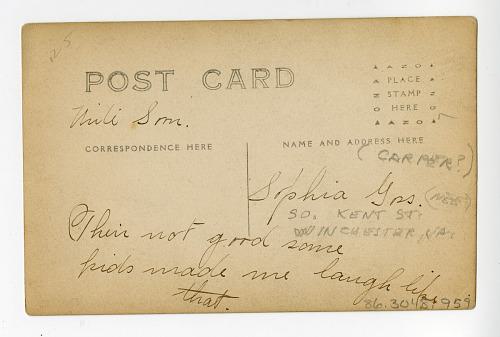 POST CARD
AZO
PLACE
STAMP
HERE
AZO
CORRESPONDENCE HERE
NAME AND ADDRESS HERE
(CARPER?)
Sophia Goss. (NEE)
SO. KENT ST.
WINCHESTER, VA.
Their not good some
kids made me laugh
that.